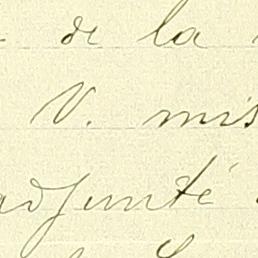 de la
V. mis
adjunté